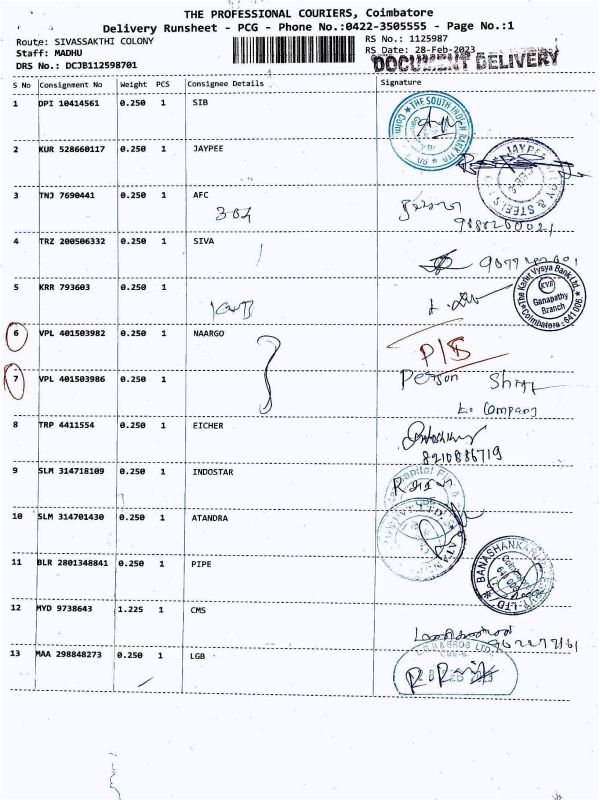 THE PROFESSIONAL COURIERS, Coimbatore
Delivery Runsheet - PCG - Phone No.:0422-3505555 - Page No.:1
Route: SIVASSAKTHI COLONY RS No.: 1125987
Staff: MADHU RS Date: 28-Feb-2023
DRS No.: DCJB112598701 DOCUMENT DELIVERY
S No Consignment No Weight PCS Consignee Details Signature
1 DPI 10414561 0.250 1 SIB
THE SOUTH INDIAN BANK
2 KUR 528660117 0.250 1 JAYPEE
JAYPEE & STEELS
3 TNJ 7690441 0.250 1 AFC
304
4 TRZ 200506332 0.250 1 SIVA
5 KRR 793603 0.250 1
KVB
The Karur Vysya Bank Ltd.
KVB
Ganapathy
Branch
Coimbatore - 641 006.
6 VPL 401503982 0.250 1 NAARGO
P/S
7 VPL 401503986 0.250 1
Person Shift
Company
8 TRP 4411554 0.250 1 EICHER
8210886719
9 SLM 314718109 0.250 1 INDOSTAR
Capital
10 SLM 314701430 0.250 1 ATANDRA
11 BLR 2801348841 0.250 1 PIPE
BANASHANKARI
12 MYD 9738643 1.225 1 CMS
13 MAA 298848273 0.250 1 LGB
& BROS LTD.